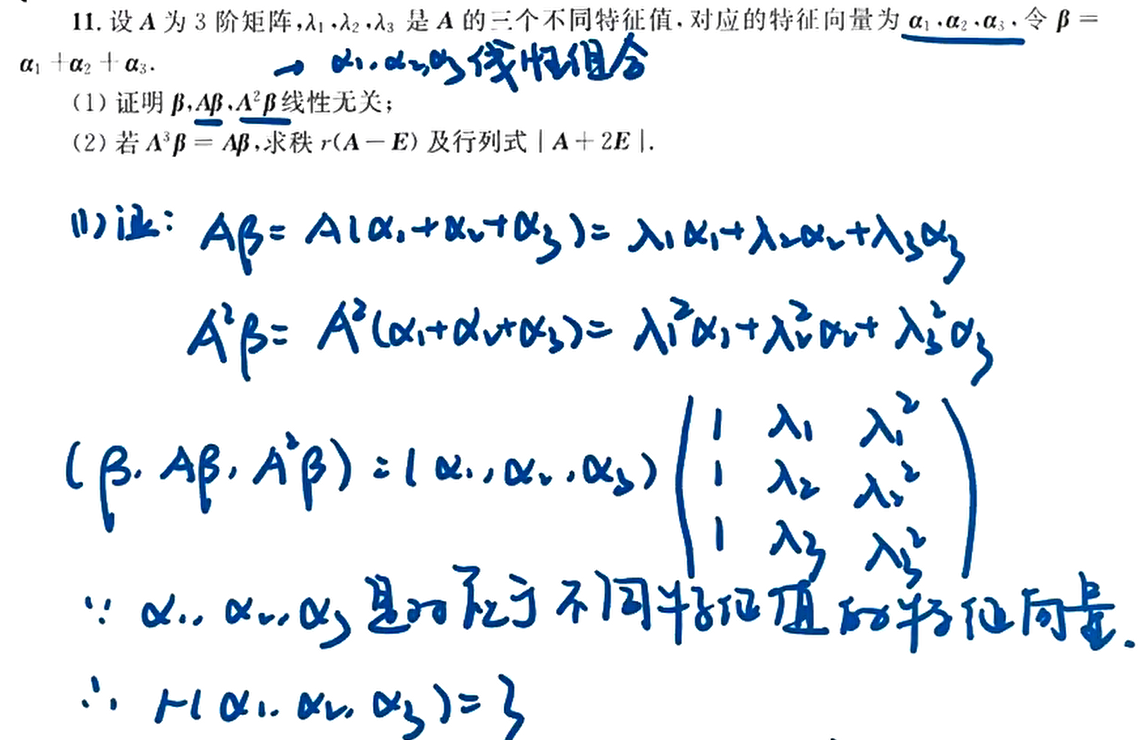 11. 设 A 为 3 阶矩阵,λ₁,λ₂,λ₃ 是 A 的三个不同特征值,对应的特征向量为 α₁,α₂,α₃,令 β =
α₁ + α₂ + α₃.
→ α₁,α₂,α₃线性组合
(1) 证明 β,Aβ,A²β线性无关;
(2) 若 A³β = Aβ,求秩 r(A − E) 及行列式 | A + 2E |.
(1) 证: Aβ = A(α₁+α₂+α₃) = λ₁α₁+λ₂α₂+λ₃α₃
A²β = A²(α₁+α₂+α₃) = λ₁²α₁+λ₂²α₂+λ₃²α₃
(β, Aβ, A²β) = (α₁, α₂, α₃) ( 1 λ₁ λ₁²
1 λ₂ λ₂²
1 λ₃ λ₃² )
∵ α₁, α₂, α₃是对应于不同特征值的特征向量.
∴ r(α₁, α₂, α₃) = 3